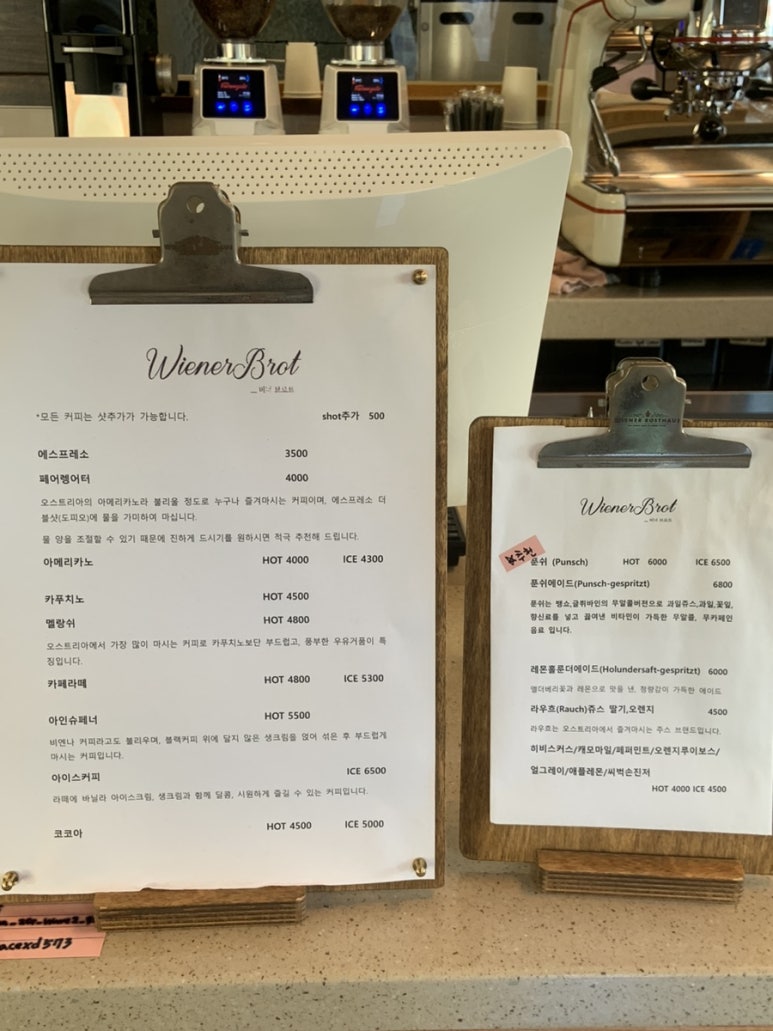 WienerBrot
비너 브로트
*모든 커피는 샷추가가 가능합니다. shot추가 500
에스프레소 3500
페어렝어터 4000
오스트리아의 아메리카노라 불리울 정도로 누구나 즐겨마시는 커피이며, 에스프레소 더
블샷(도피오)에 물을 가미하여 마십니다.
물 양을 조절할 수 있기 때문에 진하게 드시기를 원하시면 적극 추천해 드립니다.
아메리카노 HOT 4000 ICE 4300
카푸치노 HOT 4500
멜랑쉬 HOT 4800
오스트리아에서 가장 많이 마시는 커피로 카푸치노보단 부드럽고, 풍부한 우유거품이 특
징입니다.
카페라떼 HOT 4800 ICE 5300
아인슈페너 HOT 5500
비엔나 커피라고도 불리우며, 블랙커피 위에 달지 않은 생크림을 얹어 섞은 후 부드럽게
마시는 커피입니다.
아이스커피 ICE 6500
라떼에 바닐라 아이스크림, 생크림과 함께 달콤, 시원하게 즐길 수 있는 커피입니다.
코코아 HOT 4500 ICE 5000
acexd573
WIENER ROSTHAUS
WienerBrot
비너 브로트
푼쉬 (Punsch) HOT 6000 ICE 6500
푼쉬에이드(Punsch-gespritzt) 6800
푼쉬는 뱅쇼,글뤼바인의 무알콜버전으로 과일쥬스,과일,꽃잎,
향신료를 넣고 끓여낸 비타민이 가득한 무알콜, 무카페인
음료 입니다.
레몬홀룬더에이드(Holundersaft-gespritzt) 6000
엘더베리꽃과 레몬으로 맛을 낸, 청량감이 가득한 에이드
라우흐(Rauch)쥬스 딸기,오렌지 4500
라우흐는 오스트리아에서 즐겨마시는 주스 브랜드입니다.
히비스커스/캐모마일/페퍼민트/오렌지루이보스/
얼그레이/애플레몬/씨벅손진저
HOT 4000 ICE 4500